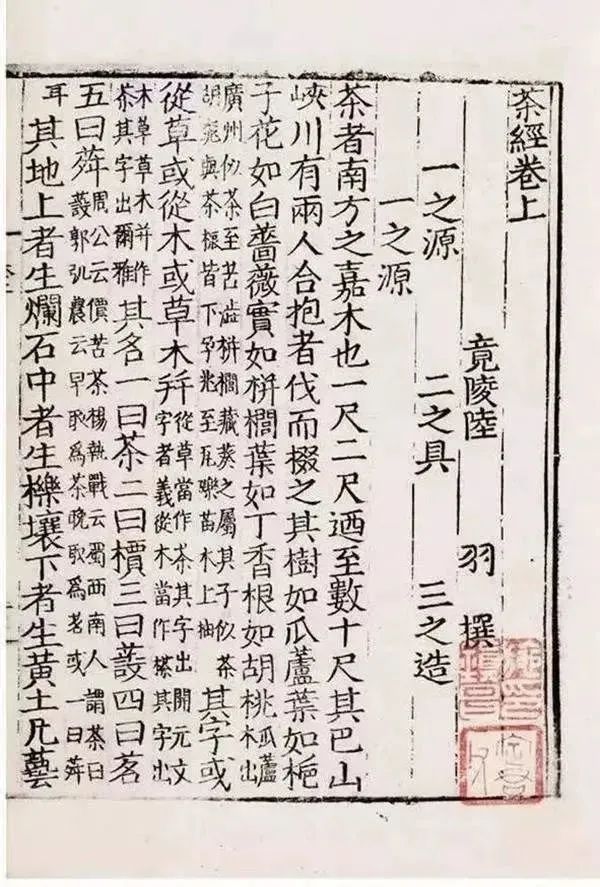 茶經卷上
竟陵陸 羽 撰
一之源 二之具 三之造
一之源
茶者南方之嘉木也一尺二尺迺至數十尺其巴山
峽川有兩人合抱者伐而掇之其樹如瓜蘆葉如梔
子花如白薔薇實如栟櫚葉如丁香根如胡桃瓜蘆木出
廣州似茶至苦澁栟櫚藏葵之屬其子似茶胡桃與茶根皆下孕兆至瓦礫苗木上抽其字或
從草或從木或草木并從草當作茶其字出開元文字者義從木當作搽其字出
木草草木并作茶其字出爾雅其名一曰茶二曰檟三曰蔎四曰茗
五曰荈周公云價苦茶楊執戟云蜀西南人謂茶曰蔎郭弘農云早取爲茶晚取爲茗或一曰荈
耳其地上者生爛石中者生櫟壤下者生黃土凡藝